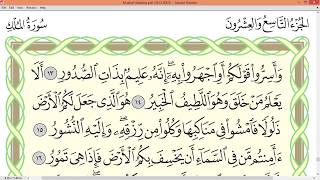 الجزء التاسع والعشرون
سورة الملك
وَأَسِرُّوا۟ قَوْلَكُمْ أَوِ ٱجْهَرُوا۟ بِهِۦٓ ۖ إِنَّهُۥ عَلِيمٌۢ بِذَاتِ ٱلصُّدُورِ ١٣ أَلَا
يَعْلَمُ مَنْ خَلَقَ وَهُوَ ٱللَّطِيفُ ٱلْخَبِيرُ ١٤ هُوَ ٱلَّذِى جَعَلَ لَكُمُ ٱلْأَرْضَ
ذَلُولًا فَٱمْشُوا۟ فِى مَنَاكِبِهَا وَكُلُوا۟ مِن رِّزْقِهِۦ ۖ وَإِلَيْهِ ٱلنُّشُورُ ١٥
ءَأَمِنتُم مَّن فِى ٱلسَّمَآءِ أَن يَخْسِفَ بِكُمُ ٱلْأَرْضَ فَإِذَا هِىَ تَمُورُ ١٦